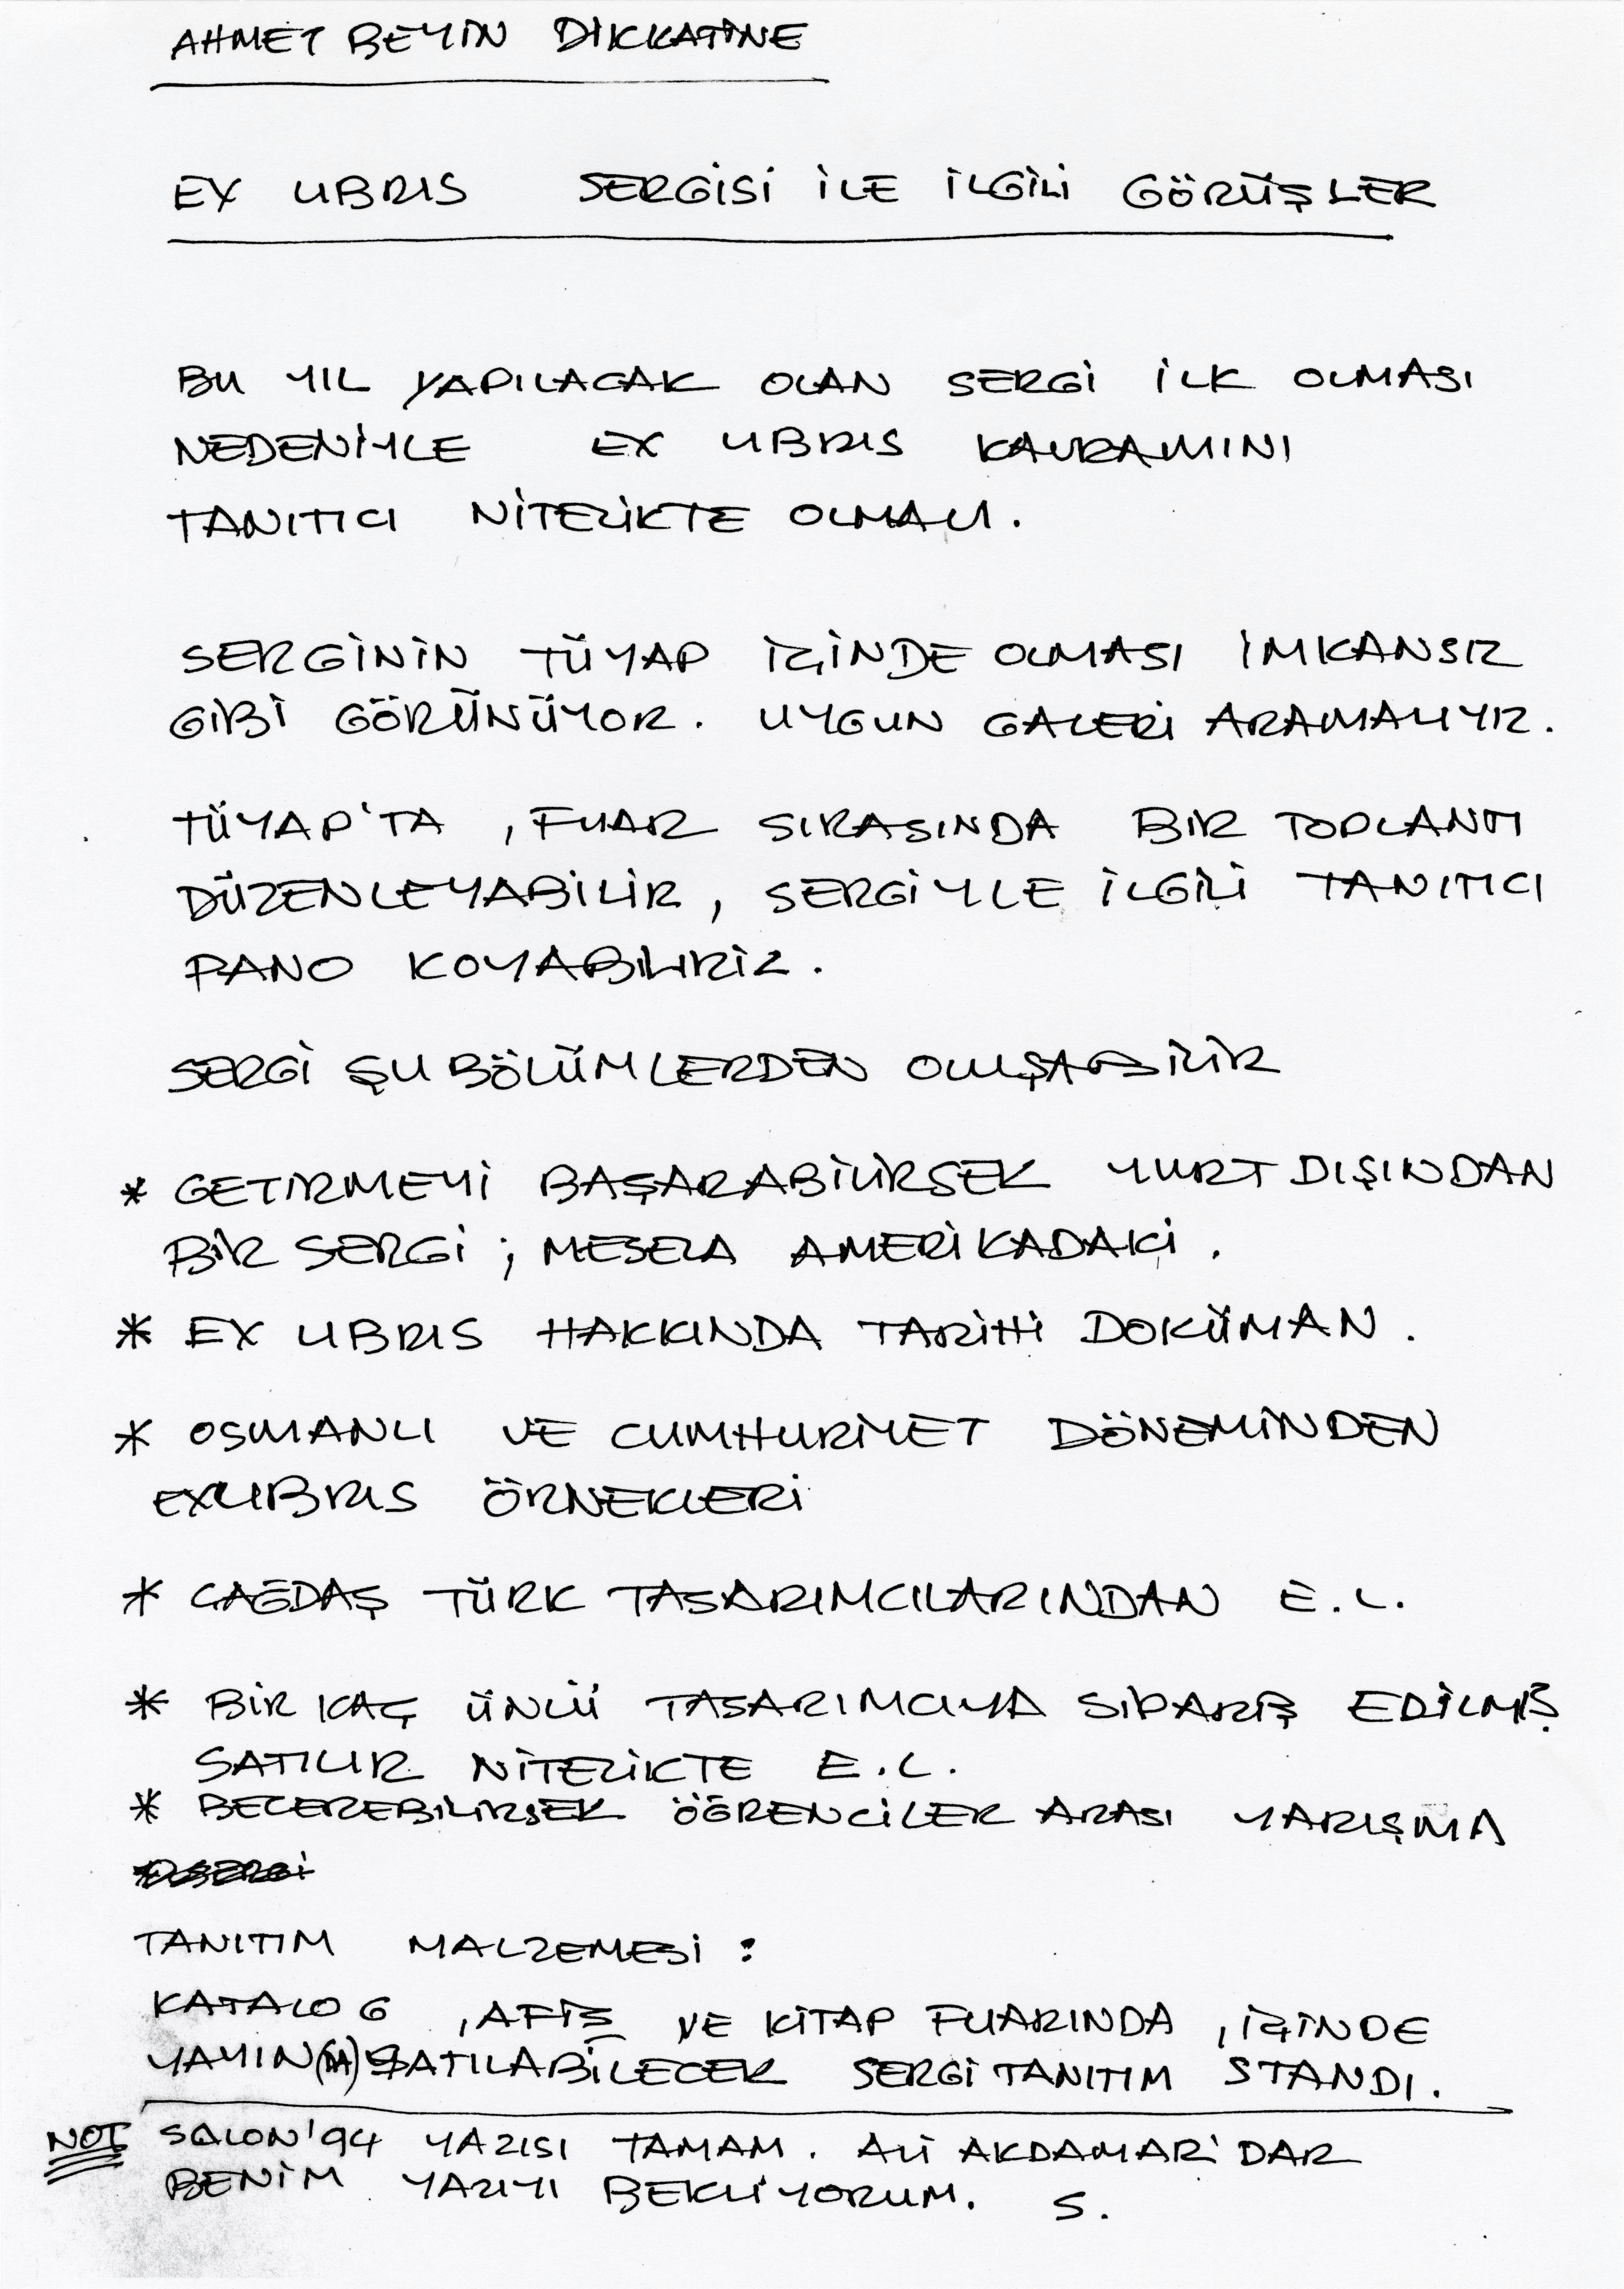 AHMET BEYİN DİKKATİNE
EX LIBRIS SERGİSİ İLE İLGİLİ GÖRÜŞLER
BU YIL YAPILACAK OLAN SERGİ İLK OLMASI
NEDENİYLE EX LIBRIS KAVRAMINI
TANITICI NİTELİKTE OLMALI.
SERGİNİN TÜYAP İÇİNDE OLMASI İMKANSIZ
GİBİ GÖRÜNÜYOR. UYGUN GALERİ ARAMALIYIZ.
TÜYAP'TA, FUAR SIRASINDA BİR TOPLANTI
DÜZENLEYABİLİR, SERGİYLE İLGİLİ TANITICI
PANO KOYABİLİRİZ.
SERGİ ŞU BÖLÜMLERDEN OLUŞABİLİR
* GETİRMEYİ BAŞARABİLİRSEK YURT DIŞINDAN
BİR SERGİ; MESELA AMERİKADAKİ.
* EX LIBRIS HAKKINDA TARİHİ DOKÜMAN.
* OSMANLI VE CUMHURİYET DÖNEMİNDEN
EXLIBRIS ÖRNEKLERİ
* ÇAĞDAŞ TÜRK TASARIMCILARINDAN E.L.
* BİR KAÇ ÜNLÜ TASARIMCIYA SİPARİŞ EDİLMİŞ
SATILIR NİTELİKTE E.L.
* BECEREBİLİRSEK ÖĞRENCİLER ARASI YARIŞMA
TANITIM MALZEMESİ:
KATALOG, AFİŞ VE KİTAP FUARINDA, İÇİNDE
YAYIN(DA) SATILABİLECEK SERGİ TANITIM STANDI.
NOT SALON'94 YAZISI TAMAM. ALİ AKDAMAR'DAR
BENİM YAZIYI BEKLİYORUM. S.